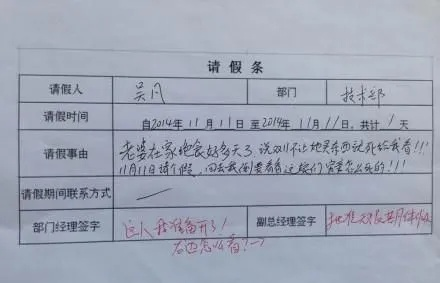 请假条
请假人 吴凡 部门 技术部
请假时间 自2014年11月11日至2014年11月11日。共计1天
请假事由 老婆在家绝食好多天了,说双11不让她买东西就死给我看!!!
11月11日请个假,回去我倒要看看这娘们究竟怎么死的!!!
请假期间联系方式 —
部门经理签字 这人我准备开了! 副总经理签字 批准
右边怎么看?→